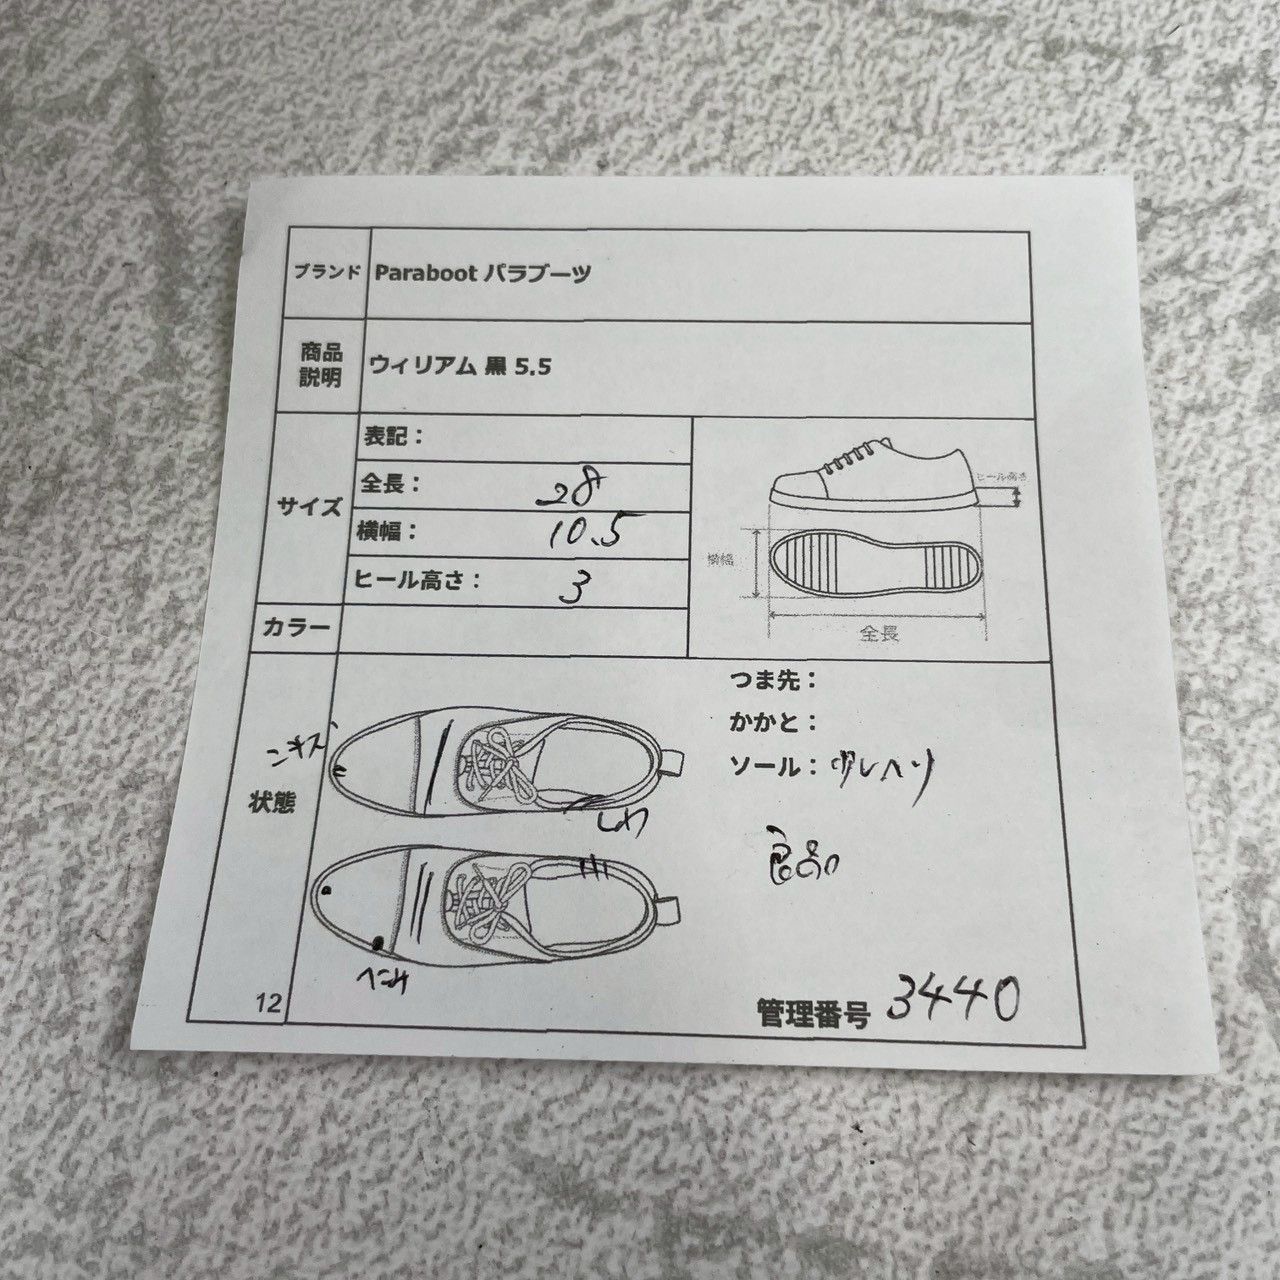 ブランド Paraboot パラブーツ
商品
説明
ウィリアム 黒 5.5
サイズ
表記：
全長： 28
横幅： 10.5
ヒール高さ： 3
ヒール高さ
横幅
全長
カラー
状態
つま先：
かかと：
ソール： 少しヘリ
良品
キズ
しわ
へこみ
12
管理番号 3440